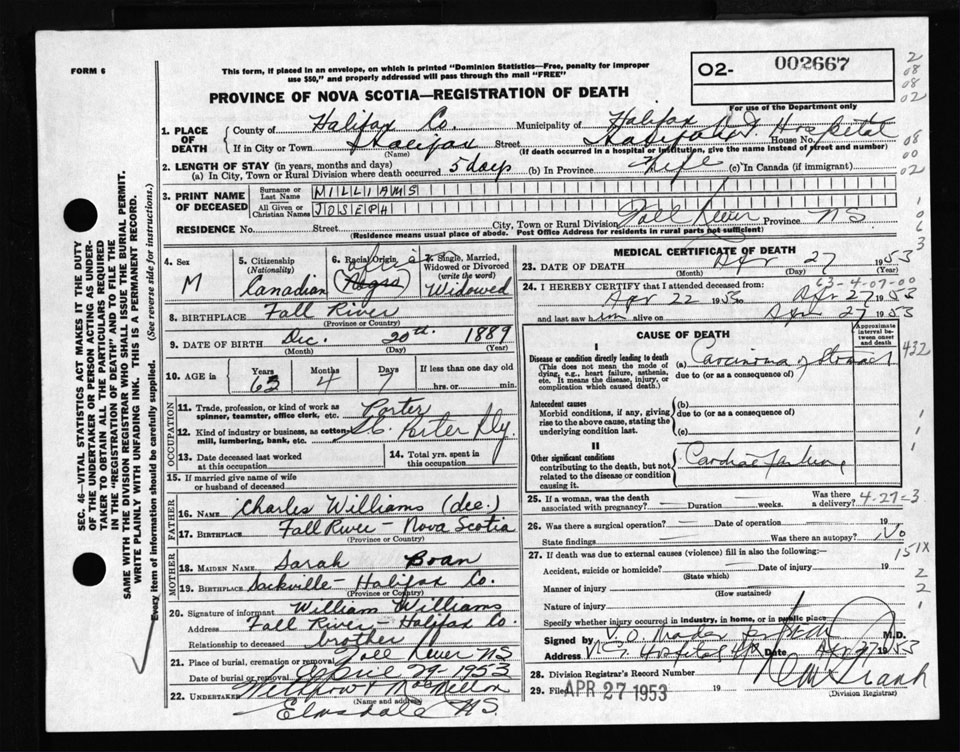 FORM 6
This form, if placed in an envelope, on which is printed "Dominion Statistics—Free, penalty for improper
use $50," and properly addressed will pass through the mail "FREE"
02- 002667
PROVINCE OF NOVA SCOTIA—REGISTRATION OF DEATH
For use of the Department only
2
08
08
02
1. PLACE OF DEATH
County of Halifax Co. Municipality of Halifax
If in City or Town Halifax Street Hospital House No.
(Name) (If death occurred in a hospital or institution, give the name instead of street and number)
08
00
02
2. LENGTH OF STAY (in years, months and days)
(a) In City, Town or Rural Division where death occurred 5 days (b) In Province Life (c) In Canada (if immigrant)
3. PRINT NAME OF DECEASED
Surname or Last Name WILLIAMS
All Given or Christian Names JOSEPH
RESIDENCE No. Street City, Town or Rural Division Fall River Province NS
(Residence means usual place of abode. Post Office Address for residents in rural parts not sufficient)
1
0
6
3
4. Sex M
5. Citizenship (Nationality) Canadian
6. Racial Origin Negro
7. Single, Married, Widowed or Divorced (write the word) Widowed
8. BIRTHPLACE Fall River
(Province or Country)
9. DATE OF BIRTH Dec. 20th 1889
(Month) (Day) (Year)
10. AGE in Years 63 Months 4 Days 7 If less than one day old
hrs. or min.
OCCUPATION
11. Trade, profession, or kind of work as spinner, teamster, office clerk, etc. Porter
12. Kind of industry or business, as cotton-mill, lumbering, bank, etc. Porter Rly.
13. Date deceased last worked at this occupation
14. Total yrs. spent in this occupation
15. If married give name of wife or husband of deceased
FATHER
16. NAME Charles Williams (dec.)
17. BIRTHPLACE Fall River - Nova Scotia
(Province or Country)
MOTHER
18. MAIDEN NAME Sarah Boan
19. BIRTHPLACE Sackville - Halifax Co.
(Province or Country)
20. Signature of informant William Williams
Address Fall River - Halifax Co.
Relationship to deceased brother
21. Place of burial, cremation or removal Fall River NS
Date of burial or removal April 29 1953
22. UNDERTAKER
Elmsdale N.S.
MEDICAL CERTIFICATE OF DEATH
23. DATE OF DEATH Apr 27 1953
(Month) (Day) (Year)
63-4-07-00
24. I HEREBY CERTIFY that I attended deceased from:
Apr 22 1953 to Apr 27 1953
and last saw him alive on Apr 27 1953
CAUSE OF DEATH
Approximate interval between onset and death
I
Disease or condition directly leading to death
(This does not mean the mode of dying, e.g., heart failure, asthenia, etc. It means the disease, injury, or complication which caused death.)
(a) Carcinoma of Stomach
due to (or as a consequence of)
432
Antecedent causes
Morbid conditions, if any, giving rise to the above cause, stating the underlying condition last.
(b)
due to (or as a consequence of)
(c)
II
Other significant conditions
contributing to the death, but not related to the disease or condition causing it.
Cardiac failure
25. If a woman, was the death associated with pregnancy? Duration weeks. Was there a delivery?
4-27-3
26. Was there a surgical operation? Date of operation 19
State findings Was there an autopsy? No
27. If death was due to external causes (violence) fill in also the following:—
151X
Accident, suicide or homicide? Date of injury 19
(State which)
Manner of injury
(How sustained)
Nature of injury
Specify whether injury occurred in industry, in home, or in public place
2
2
1
Signed by M.D.
Address V.G. Hospital Hfx Date Apr 27 1953
28. Division Registrar's Record Number
29. Filed APR 27 1953
(Division Registrar)
SEC. 46—VITAL STATISTICS ACT MAKES IT THE DUTY
OF THE UNDERTAKER OR PERSON ACTING AS UNDER-
TAKER TO OBTAIN ALL THE PARTICULARS REQUIRED
IN THE "REGISTRATION OF DEATH" AND TO FILE THE
SAME WITH THE DIVISION REGISTRAR WHO SHALL ISSUE THE BURIAL PERMIT.
WRITE PLAINLY WITH UNFADING INK. THIS IS A PERMANENT RECORD.
Every item of information should be carefully supplied. (See reverse side for instructions.)